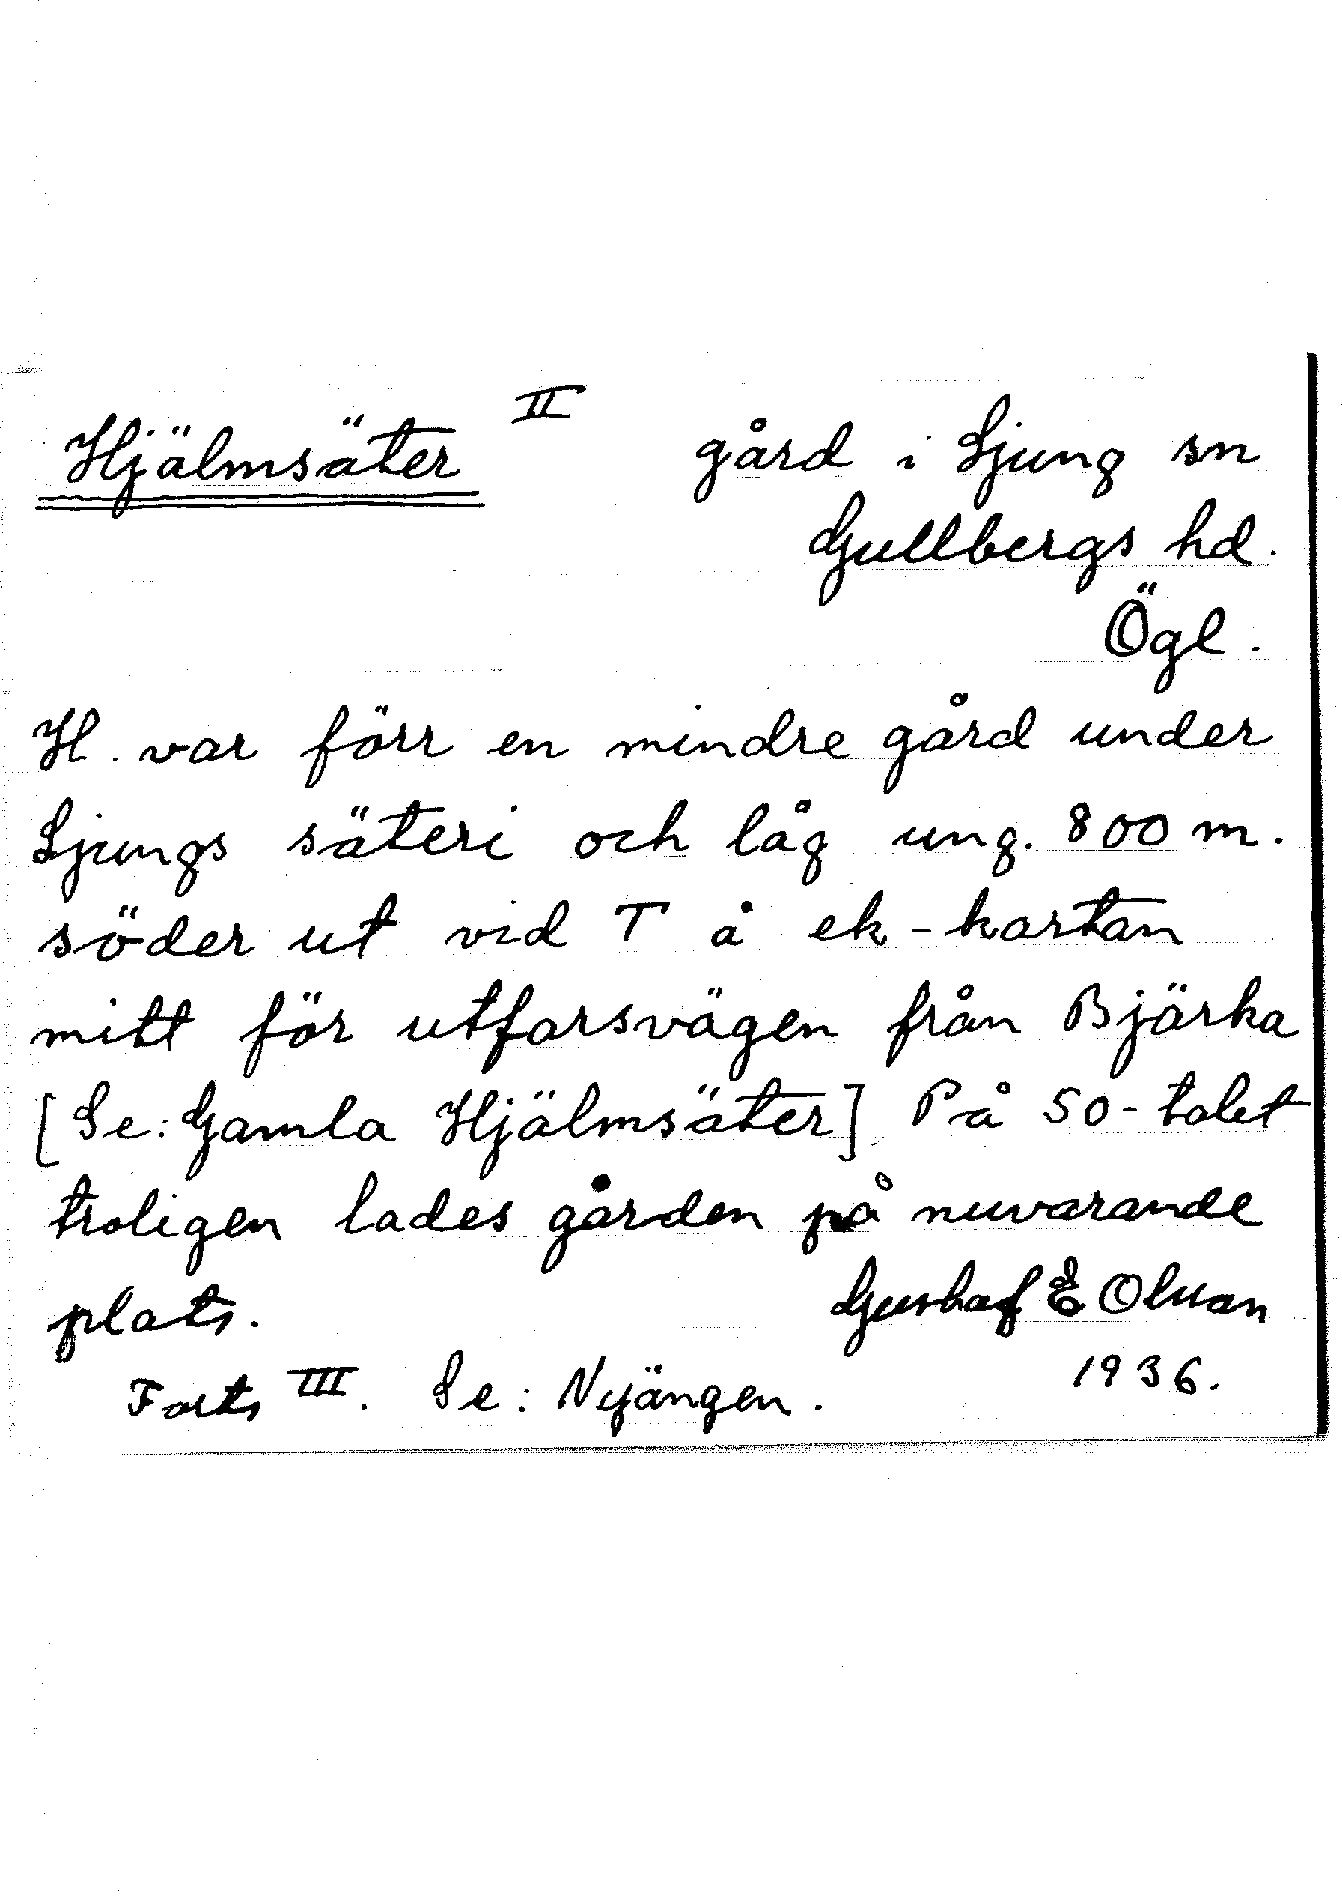 Hjälmsäter II gård i Ljung sn
Gullbergs hd.
Ögl.
H. var förr en mindre gård under
Ljungs säteri och låg ung. 800 m.
söder ut vid T å ek-kartan
mitt för utfarsvägen från Bjärka
[Se: Gamla Hjälmsäter] På 50-talet
troligen lades gården på nuvarande
plats. Gustaf E Olsson
Forts III. Se: Nyängen. 1936.